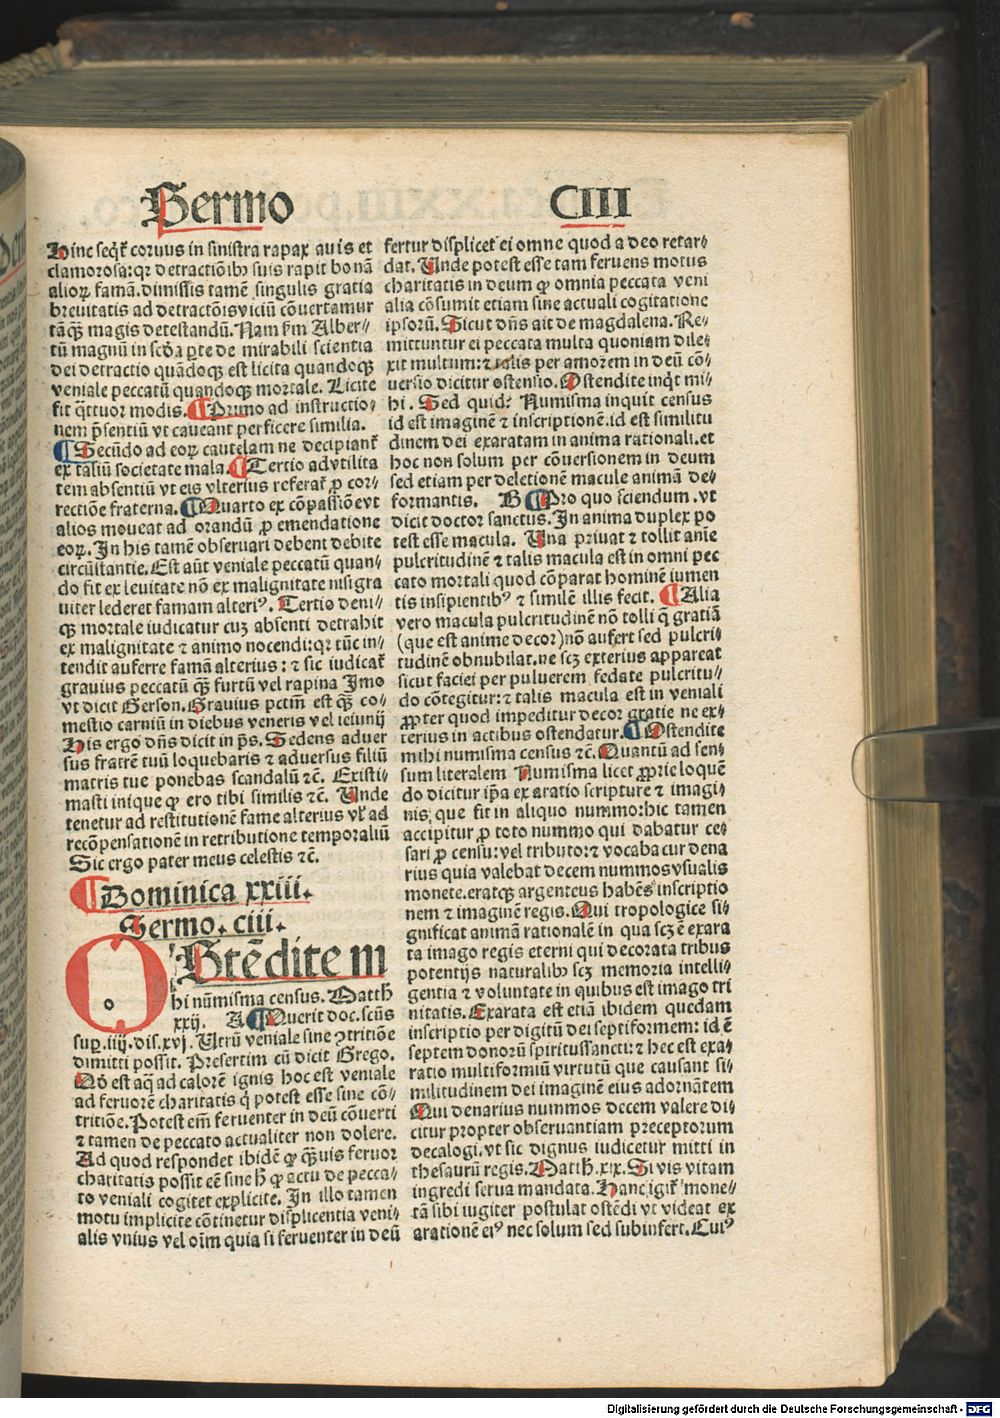 Sermo CIII
Hinc seqt̄ coruus in sinistra rapax auis et
clamorosa:qꝛ detractiōibꝰ suis rapit bonā
alioꝝ famā.dimissis tamē singulis gratia
breuitatis ad detractōis viciū cōuertamur
tāꝙ magis detestandū.Nam ẜm Alber⸗
tū magnū in scḋa ꝑte de mirabili scientia
dei detractio quādoꝙ est licita quandoꝙ
veniale peccatū quandoꝙ mortale. Licite
fit q̈ttuor modis. ¶Primo ad instructio⸗
nem p̄sentiū vt caueant perficere similia.
¶Secūdo ad eoꝝ cautelam ne decipiant̄
ex taliū societate mala.¶Tertio ad vtilita
tem absentiū vt eis vlterius referat̄ ꝓ cor⸗
rectiōe fraterna.¶Quarto ex cōpassiōe vt
alios moueat ad orandū ꝓ emendatione
eoꝝ. In his tamē obseruari debent debite
circūstantie.Est aūt veniale peccatū quan⸗
do fit ex leuitate nō ex malignitate nisi gra
uiter lederet famam alteriꝰ. Tertio deni⸗
qꝫ mortale iudicatur cuꝫ absenti detrahit
ex malignitate ⁊ animo nocendi:qꝛ tūc in⸗
tendit auferre famā alterius: ⁊ sic iudicat̄
grauius peccatū ꝙ̄ furtū vel rapina Imo
vt dicit Gerson.Grauius pctm̄ est ꝙ̄ co⸗
mestio carniū in diebus veneris vel ieiunij
His ergo dn̄s dicit in ps̄. Sedens aduer
sus fratrē tuū loquebaris ⁊ aduersus filiū
matris tue ponebas scandalū ⁊c̄. Existi⸗
masti inique ꝙ ero tibi similis ⁊c̄. Unde
tenetur ad restitutionē fame alterius vl̄ ad
recōpensationē in retributione temporaliū
Sic ergo pater meus celestis ⁊c̄.
¶Dominica xxiii.
Sermo. ciii.
OStēdite m
hi nūmisma census. Matth
xxij. A ¶Querit doc. scūs
suꝑ.iiij.dis.xvj. Utrū veniale sine ꝯtritiōe
dimitti possit. Presertim cū dicit Grego.
Qḋ est aq̄ ad calorē ignis hoc est veniale
ad feruorē charitatis q̇ potest esse sine cō⸗
tritiōe.Potest em̄ feruenter in deū cōuerti
⁊ tamen de peccato actualiter non dolere.
Ad quod respondet ibidē ꝙ ꝙ̄uis feruor
charitatis possit eē sine h̄ ꝙ actu de pecca⸗
to veniali cogitet explicite. In illo tamen
motu implicite cōtinetur displicentia veni⸗
alis vnius vel oīm quia si feruenter in deū
fertur displicet ei omne quod a deo retar⸗
dat. Unde potest esse tam feruens motus
charitatis in deum ꝙ omnia peccata veni
alia cōsumit etiam sine actuali cogitatione
ipsorū.Sicut dn̄s ait de magdalena.Re⸗
mittuntur ei peccata multa quoniam dile⸗
xit multum:⁊ talis per amorem in deū cō⸗
uersio dicitur ostensio. Ostendite inq̇t mi⸗
hi . Sed quid? Numisma inquit census
id est imaginē ⁊ inscriptionē.id est similitu
dinem dei exaratam in anima rationali.et
hoc non solum per cōuersionem in deum
sed etiam per deletionē macule animā de⸗
formantis. B ¶Pro quo sciendum .vt
dicit doctor sanctus. In anima duplex po
test esse macula. Una priuat ⁊ tollit anīe
pulcritudinē ⁊ talis macula est in omni pec
cato mortali quod cōparat hominē iumen
tis insipientibꝰ ⁊ similē illis fecit. ¶Alia
vero macula pulcritudinē nō tolli q̄ gratiā
(que est anime decor)nō aufert sed pulcri⸗
tudinē obnubilat.ne scꝫ exterius appareat
sicut faciei per puluerem fedate pulcritu⸗
do cōtegitur:⁊ talis macula est in veniali
ꝓpter quod impeditur decor gratie ne ex⸗
terius in actibus ostendatur.¶Ostendite
mihi numisma census ⁊c̄.Quantū ad sen⸗
sum literalem Numisma licet ꝓprie loquē
do dicitur ip̄a exaratio scripture ⁊ imagi⸗
nis, que fit in aliquo nummo:hic tamen
accipitur ꝓ toto nummo qui dabatur ce⸗
sari ꝓ censu:vel tributo:⁊ vocabatur dena
rius quia valebat decem nummos vsualis
monete.eratqꝫ argenteus habēs inscriptio
nem ⁊ imaginē regis.Qui tropologice si⸗
gnificat animā rationalē in qua scꝫ ē exara
ta imago regis eterni qui decorata tribus
potentijs naturalibꝰ scꝫ memoria intelli⸗
gentia ⁊ voluntate in quibus est imago tri
nitatis.Exarata est etiā ibidem quedam
inscriptio per digitū dei septiformem: id ē
septem donorū spiritussancti:⁊ hec est exa⸗
ratio multiformiū virtutū que causant si⸗
militudinem dei imaginē eius adornātem
Qui denarius nummos decem valere di⸗
citur propter obseruantiam preceptorum
decalogi.vt sic dignus iudicetur mitti in
thesaurū regis.Matth.xix.Si vis vitam
ingredi serua mandata.Hanc igit̄ mone⸗
tā sibi iugiter postulat ostēdi vt videat ex
arationē eiꝰ nec solum sed subinfert.Cuiꝰ
Digitalisierung gefördert durch die Deutsche Forschungsgemeinschaft - DFG